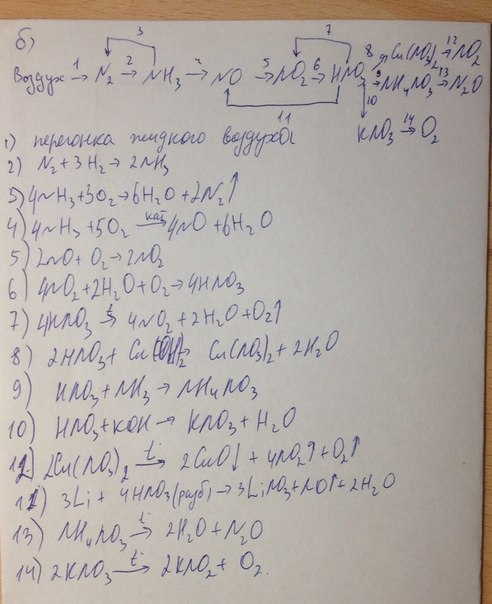 б)
3 7
Воздух 1→ N2 2→ NH3 4→ NO 5→ NO2 6→ HNO3 8 Cu(NO3)2 12→ NO2
9→ NH4NO3 13→ N2O
11 10
KNO3 14→ O2
1) перегонка жидкого воздуха
2) N2 + 3H2 → 2NH3
3) 4NH3 + 3O2 → 6H2O + 2N2↑
4) 4NH3 + 5O2 кат→ 4NO + 6H2O
5) 2NO + O2 → 2NO2
6) 4NO2 + 2H2O + O2 → 4HNO3
7) 4HNO3 t→ 4NO2 + 2H2O + O2↑
8) 2HNO3 + Cu(OH)2 Cu(NO3)2 + 2H2O
9) HNO3 + NH3 → NH4NO3
10) HNO3 + KOH → KNO3 + H2O
12) 2Cu(NO3)2 t→ 2CuO↓ + 4NO2↑ + O2↑
11) 3Li + 4HNO3 (разб) → 3LiNO3 + NO↑ + 2H2O
13) NH4NO3 t→ 2H2O + N2O
14) 2KNO3 t→ 2KNO2 + O2.